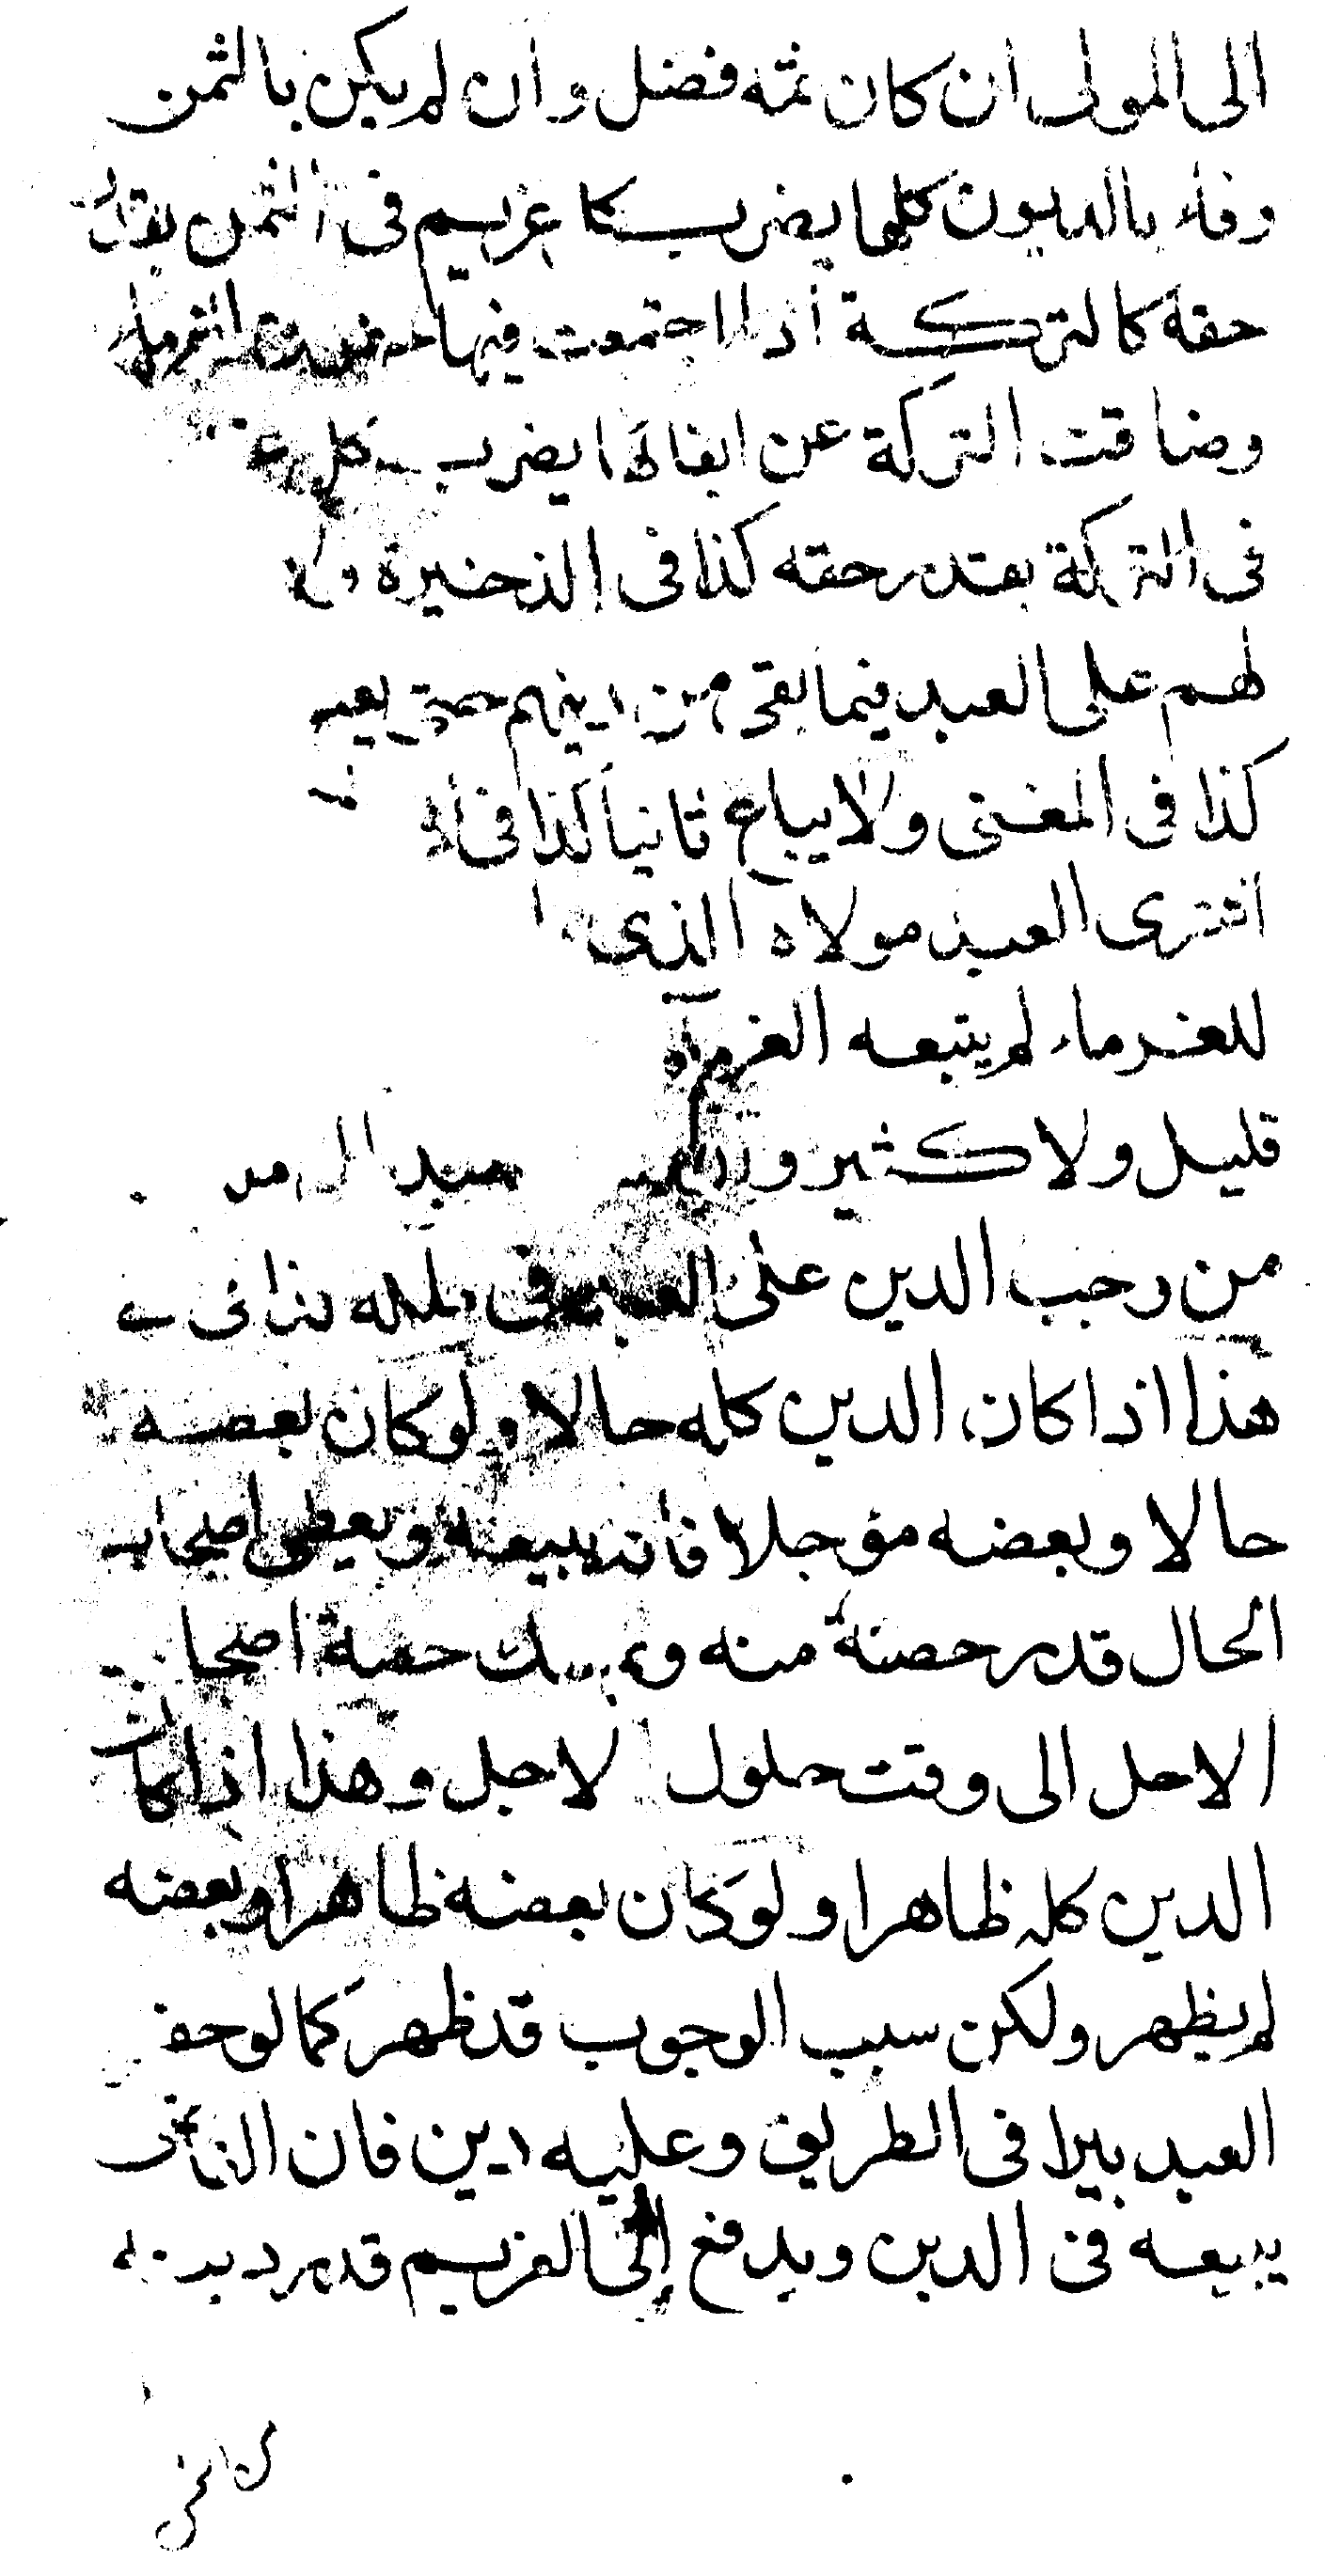 الى المولى ان كان ثمه فضل وان لم يكن بالثمن
وفاء بالديون كلها يضرب كل غريم فى الثمن بقدر
حقه كالتركة اذا اجتمعت فيها الغرماء
وضاقت التركة عن ايفائها يضرب كل
فى التركة بقدر حقه كذا فى الذخيرة ولا
لهم على العبد فيما بقى من دينهم حتى يعتق
كذا فى المغنى ولا يباع ثانيا كذا فى
اشترى العبد مولاه الذى
للغرماء لم يتبعه الغرماء
قليل ولا كثير و
من وجب الدين على العبد فى فى
هذا اذا كان الدين كله حالا ولو كان بعضه
حالا وبعضه مؤجلا فانه يبيعه ويعطى اصحاب
الحال قدر حصته منه ويمسك حصة اصحاب
الاجل الى وقت حلول الاجل وهذا اذا كان
الدين كله ظاهرا ولو كان بعضه ظاهرا وبعضه
لم يظهر ولكن سبب الوجوب قد ظهر كما لو حفر
العبد بيرا فى الطريق وعليه دين فان القاضى
يبيعه فى الدين ويدفع الى الغريم قدر دينه